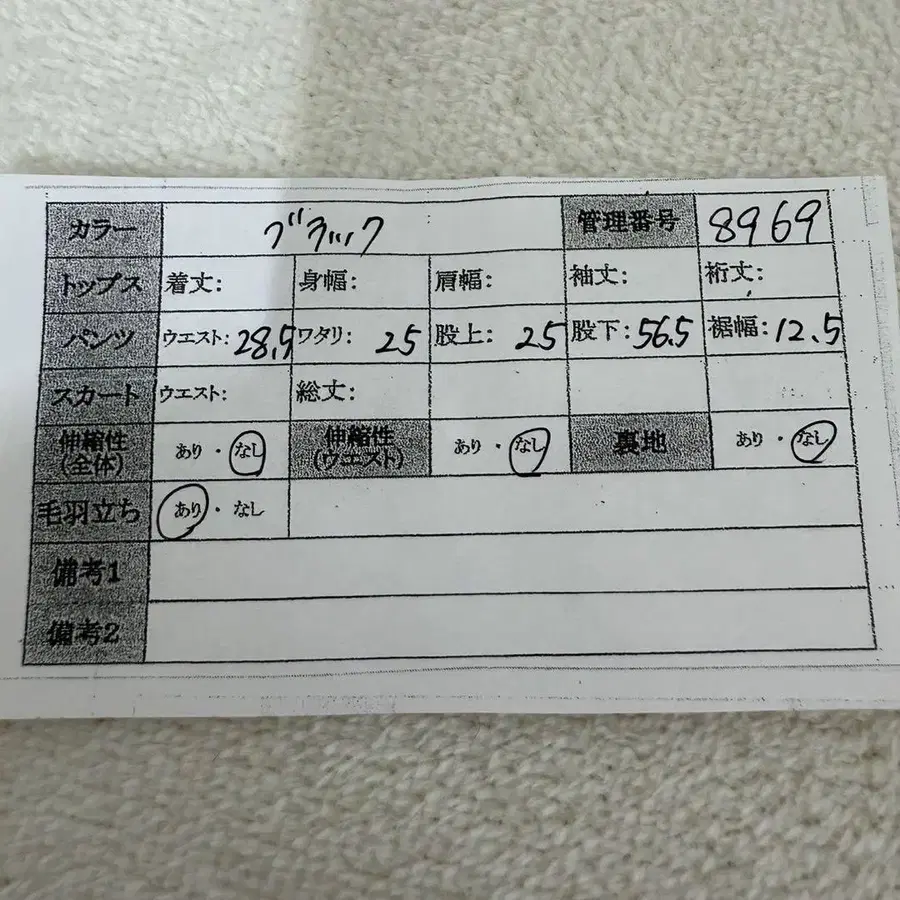 カラー ブラック 管理番号 8969
トップス 着丈: 身幅: 肩幅: 袖丈: 裄丈:
パンツ ウエスト: 28.5 ワタリ: 25 股上: 25 股下: 56.5 裾幅: 12.5
スカート ウエスト: 総丈:
伸縮性(全体) あり・なし 伸縮性(ウエスト) あり・なし 裏地 あり・なし
毛羽立ち あり・なし
備考1
備考2